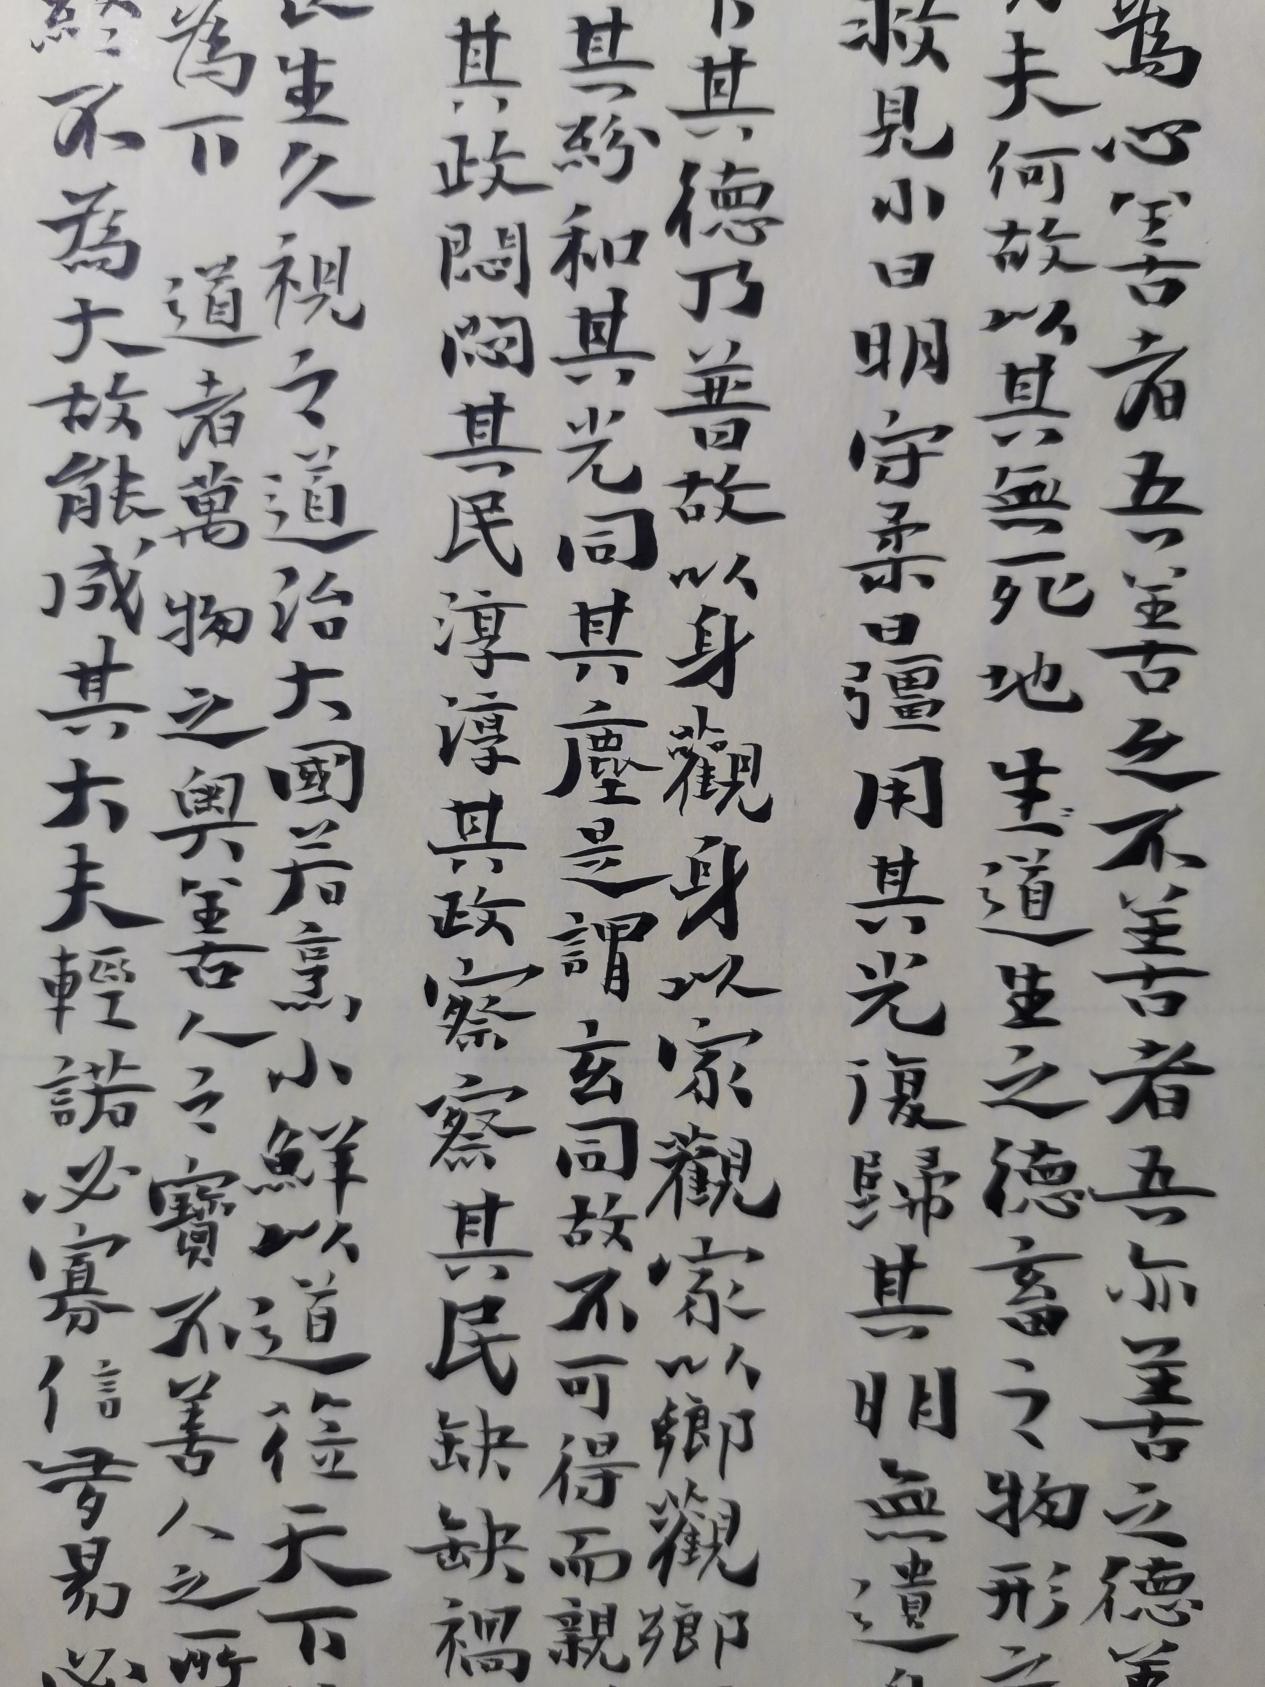 為心善者吾善之不善者吾亦善之德善
夫何故以其無死地生道生之德畜之物形之
救見小曰明守柔曰彊用其光復歸其明無遺身
下其德乃普故以身觀身以家觀家以鄉觀鄉
其紛和其光同其塵是謂玄同故不可得而親
其政悶悶其民淳淳其政察察其民缺缺禍
長生久視之道治大國若烹小鮮以道莅天下
為下 道者萬物之奧善人之寶不善人之所
終不為大故能成其大夫輕諾必寡信多易必